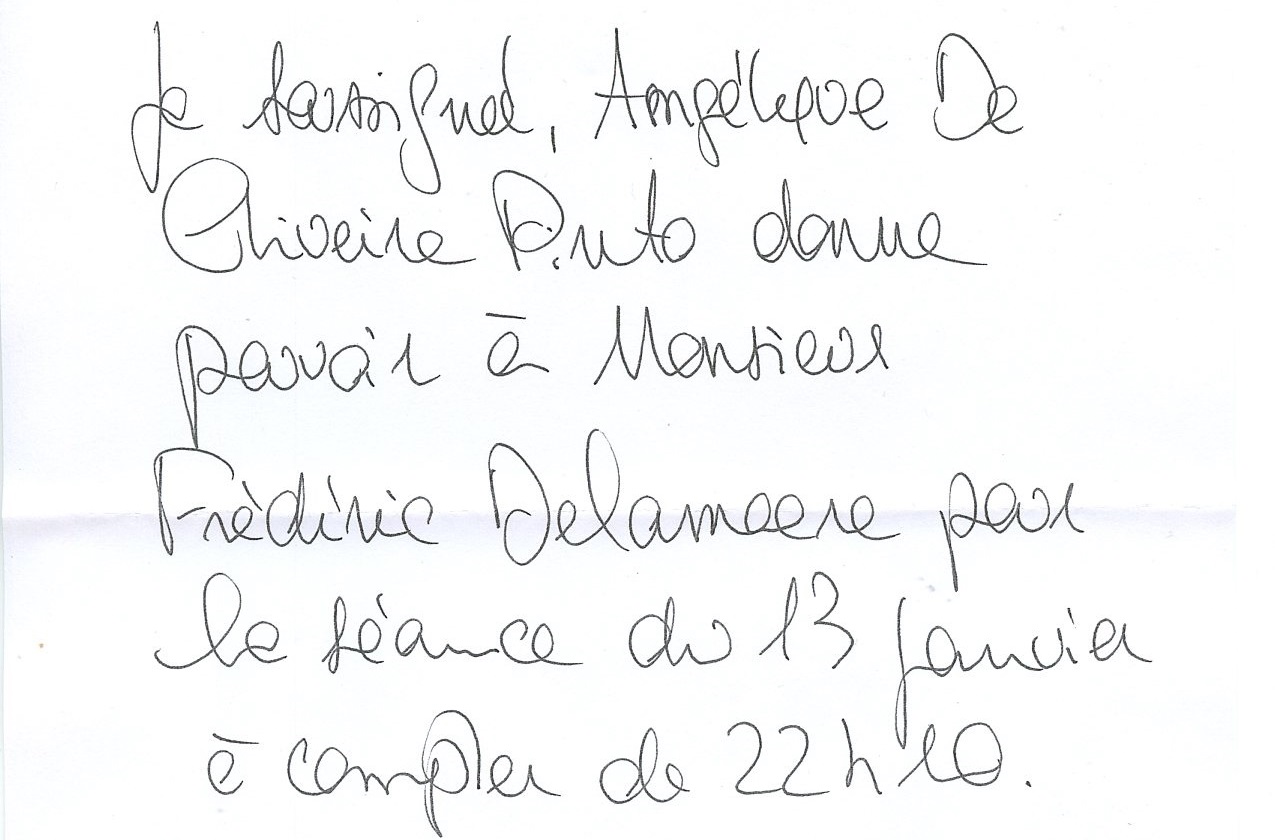 Je soussigné, Angélique De
Oliveira Pinto donne
pouvoir à Monsieur
Frédéric Delameere pour
la séance du 13 janvier
à compter de 22h10.